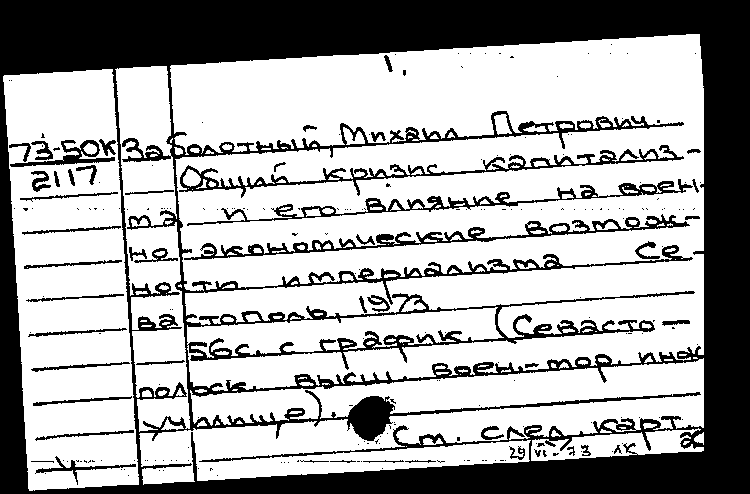 73-50К Заболотный, Михаил Петрович.
2117 Общий кризис капитализ-
ма и его влияние на воен-
но-экономические возмож-
ности империализма Се-
вастополь, 1973.
56с. с график. (Севасто-
польск. высш. воен.-мор. инж
училище).
См. след. карт.
29/VI-73